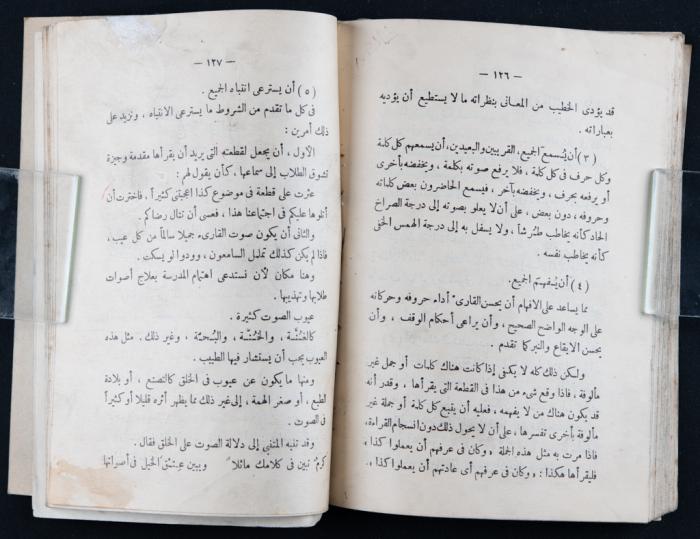 — ١٢٦ —
قد يؤدى الخطيب من المعانى بنظراته ما لا يستطيع أن يؤديه
بعباراته .
( ٣ ) أن يُسمع الجميع، القريبين والبعيدين، أن يسمعهم كل كلمة
وكل حرف فى كل كلمة ، فلا يرفع صوته بكلمة ، ويخفضه بأخرى
أو يرفعه بحرف ، ويخفضه بآخر ، فيسمع الحاضرون بعض كلماته
وحروفه ، دون بعض ، على أن لا يعلو بصوته إلى درجة الصراخ
الحاد كأنه يخاطب طُرْشاً ، ولا يسفل به إلى درجة الهمس الخفى
كأنه يخاطب نفسه .
( ٤ ) أن يُفهم الجميع.
مما يساعد على الافهام أن يحسن القارىء أداء حروفه وحركاته
على الوجه الواضح الصحيح ، وأن يراعى أحكام الوقف ، وأن
يحسن الايقاع والنبر كما تقدم .
ولكن ذلك كله لا يكفى إذا كانت هناك كلمات أو جمل غير
مألوفة ، فاذا وقع شىء من هذا فى القطعة التى يقرأها ، وقدر أنه
قد يكون هناك من لا يفهمه ، فعليه أن يتبع كل كلمة أو جملة غير
مألوفة بأخرى تفسرها ، على أن لا يحول ذلك دون انسجام القراءة،
فاذا مرت به مثل هذه الجملة « وكان فى عرفهم أن يعملوا كذا »
فليقرأها هكذا : « وكان فى عرفهم أى عادتهم أن يعملوا كذا ».
— ١٢٧ —
( ٥ ) أن يسترعى انتباه الجميع .
فى كل ما تقدم من الشروط ما يسترعى الانتباه ، ونزيد على
ذلك أمرين :
الأول ، أن يجعل لقطعته التى يريد أن يقرأها مقدمة وجيزة
تشوق الطلاب إلى سماعها ، كأن يقول لهم :
عثرت على قطعة فى موضوع كذا أعجبتنى كثيراً . فاخترت أن
أتلوها عليكم فى اجتماعنا هذا ، فعسى أن تنال رضاكم .
والثانى أن يكون صوت القارىء جميلا سالماً من كل عيب ،
فاذا لم يكن كذلك تململ السامعون ، وودوا لو يسكت .
وهنا مكان لأن نستدعى اهتمام المدرسة بعلاج أصوات
طلابها وتهذيبها .
عيوب الصوت كثيرة .
كالغُنَّة ، والخُنَّة ، والبُحَّة ، وغير ذلك . مثل هذه
العيوب يجب أن يستشار فيها الطبيب .
ومنها ما يكون عن عيوب فى الخلق كالتصنع ، أو بلادة
الطبع ، أو صغر الهمة ، إلى غير ذلك مما يظهر أثره قليلا أو كثيراً
فى الصوت .
وقد تنبه المتنبى إلى دلالة الصوت على الخلق فقال .
كرمٌ تبين فى كلامك ماثلاً ويبين عِتقُ الخيل فى أصواتها